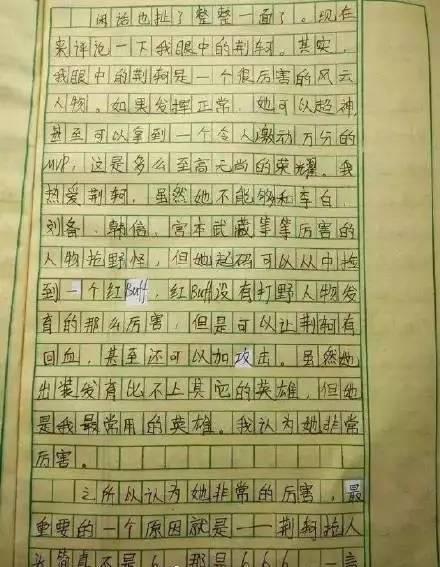 闲话也扯了整整一面了。现在
来评论一下我眼中的荆轲。其实,
我眼中的荆轲是一个很厉害的风云
人物。如果发挥正常,她可以超神,
甚至可以拿到一个令人激动万分的
MVP,这是多么至高无尚的荣耀。我
热爱荆轲,虽然她不能够和李白、
刘备、韩信、宫本武藏等等厉害的
人物抢野怪,但她起码可以从中捡
到一个红Buff,红Buff没有打野人物发
育的那么厉害,但是可以让荆轲有
回血,甚至还可以加攻击。虽然她
出装发育比不上其它的英雄,但她
是我最常用的英雄。我认为她非常
厉害。
之所以认为她非常的厉害,最
重要的一个原因就是——荆轲拉人
简真不是6,那是666,一言